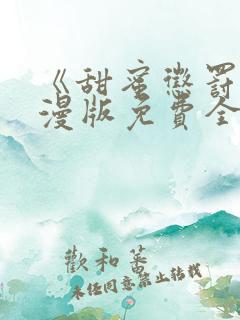 《甜蜜懲罰
漫版免費全
歡和蕃
未经同意禁止转载